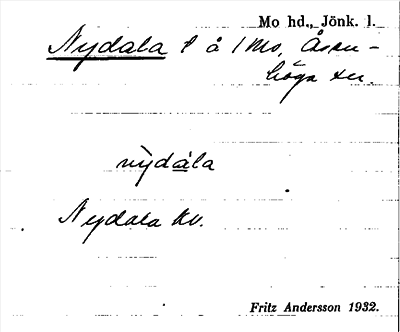 Mo hd., Jönk. l.
Nydala t å 1 Mo, Åsen-
höga sn.
nỳdála
Nydala kv.
Fritz Andersson 1932.